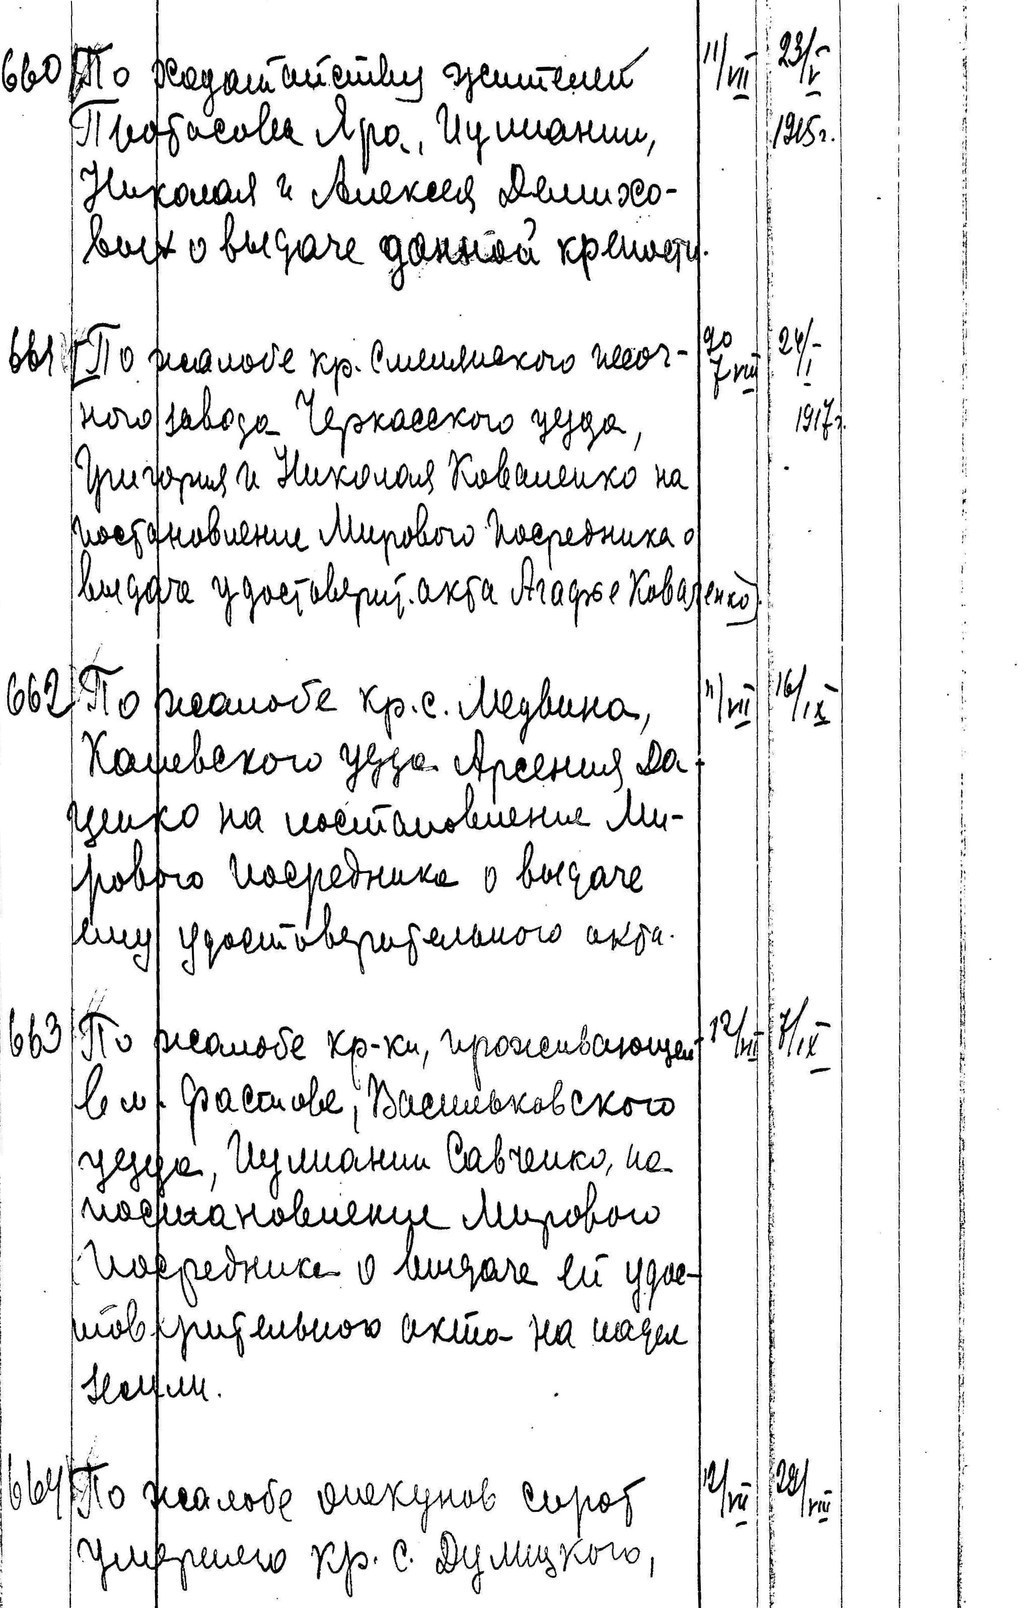 660 По ходатайству жителей 11/VII 23/V
Протасова Яра, Иулиании, 1915г.
Николая и Алексея Демихо-
вых о выдаче данной крепости.
661 По жалобе кр. Смелянского песоч- 20/VII 24/I
ного завода Черкасского уезда, 1917г.
Григория и Николая Коваленко на
постановление Мирового Посредника о
выдаче удостоверит. акта Агафье Коваленко).
662 По жалобе кр. с. Медвина, 11/VII 16/IX
Каневского уезда Арсения Да-
ценко на постановление Ми-
рового Посредника о выдаче
ему удостоверительного акта.
663 По жалобе кр-ки, проживающей 12/VII 7/IX
в м. Фастове, Васильковского
уезда, Иулиании Савченко, на
постановление Мирового
Посредника о выдаче ей удос-
товерительного акта на надел
земли.
664 По жалобе опекунов сирот 12/VII 29/VIII
умершего кр. с. Дулицкого,